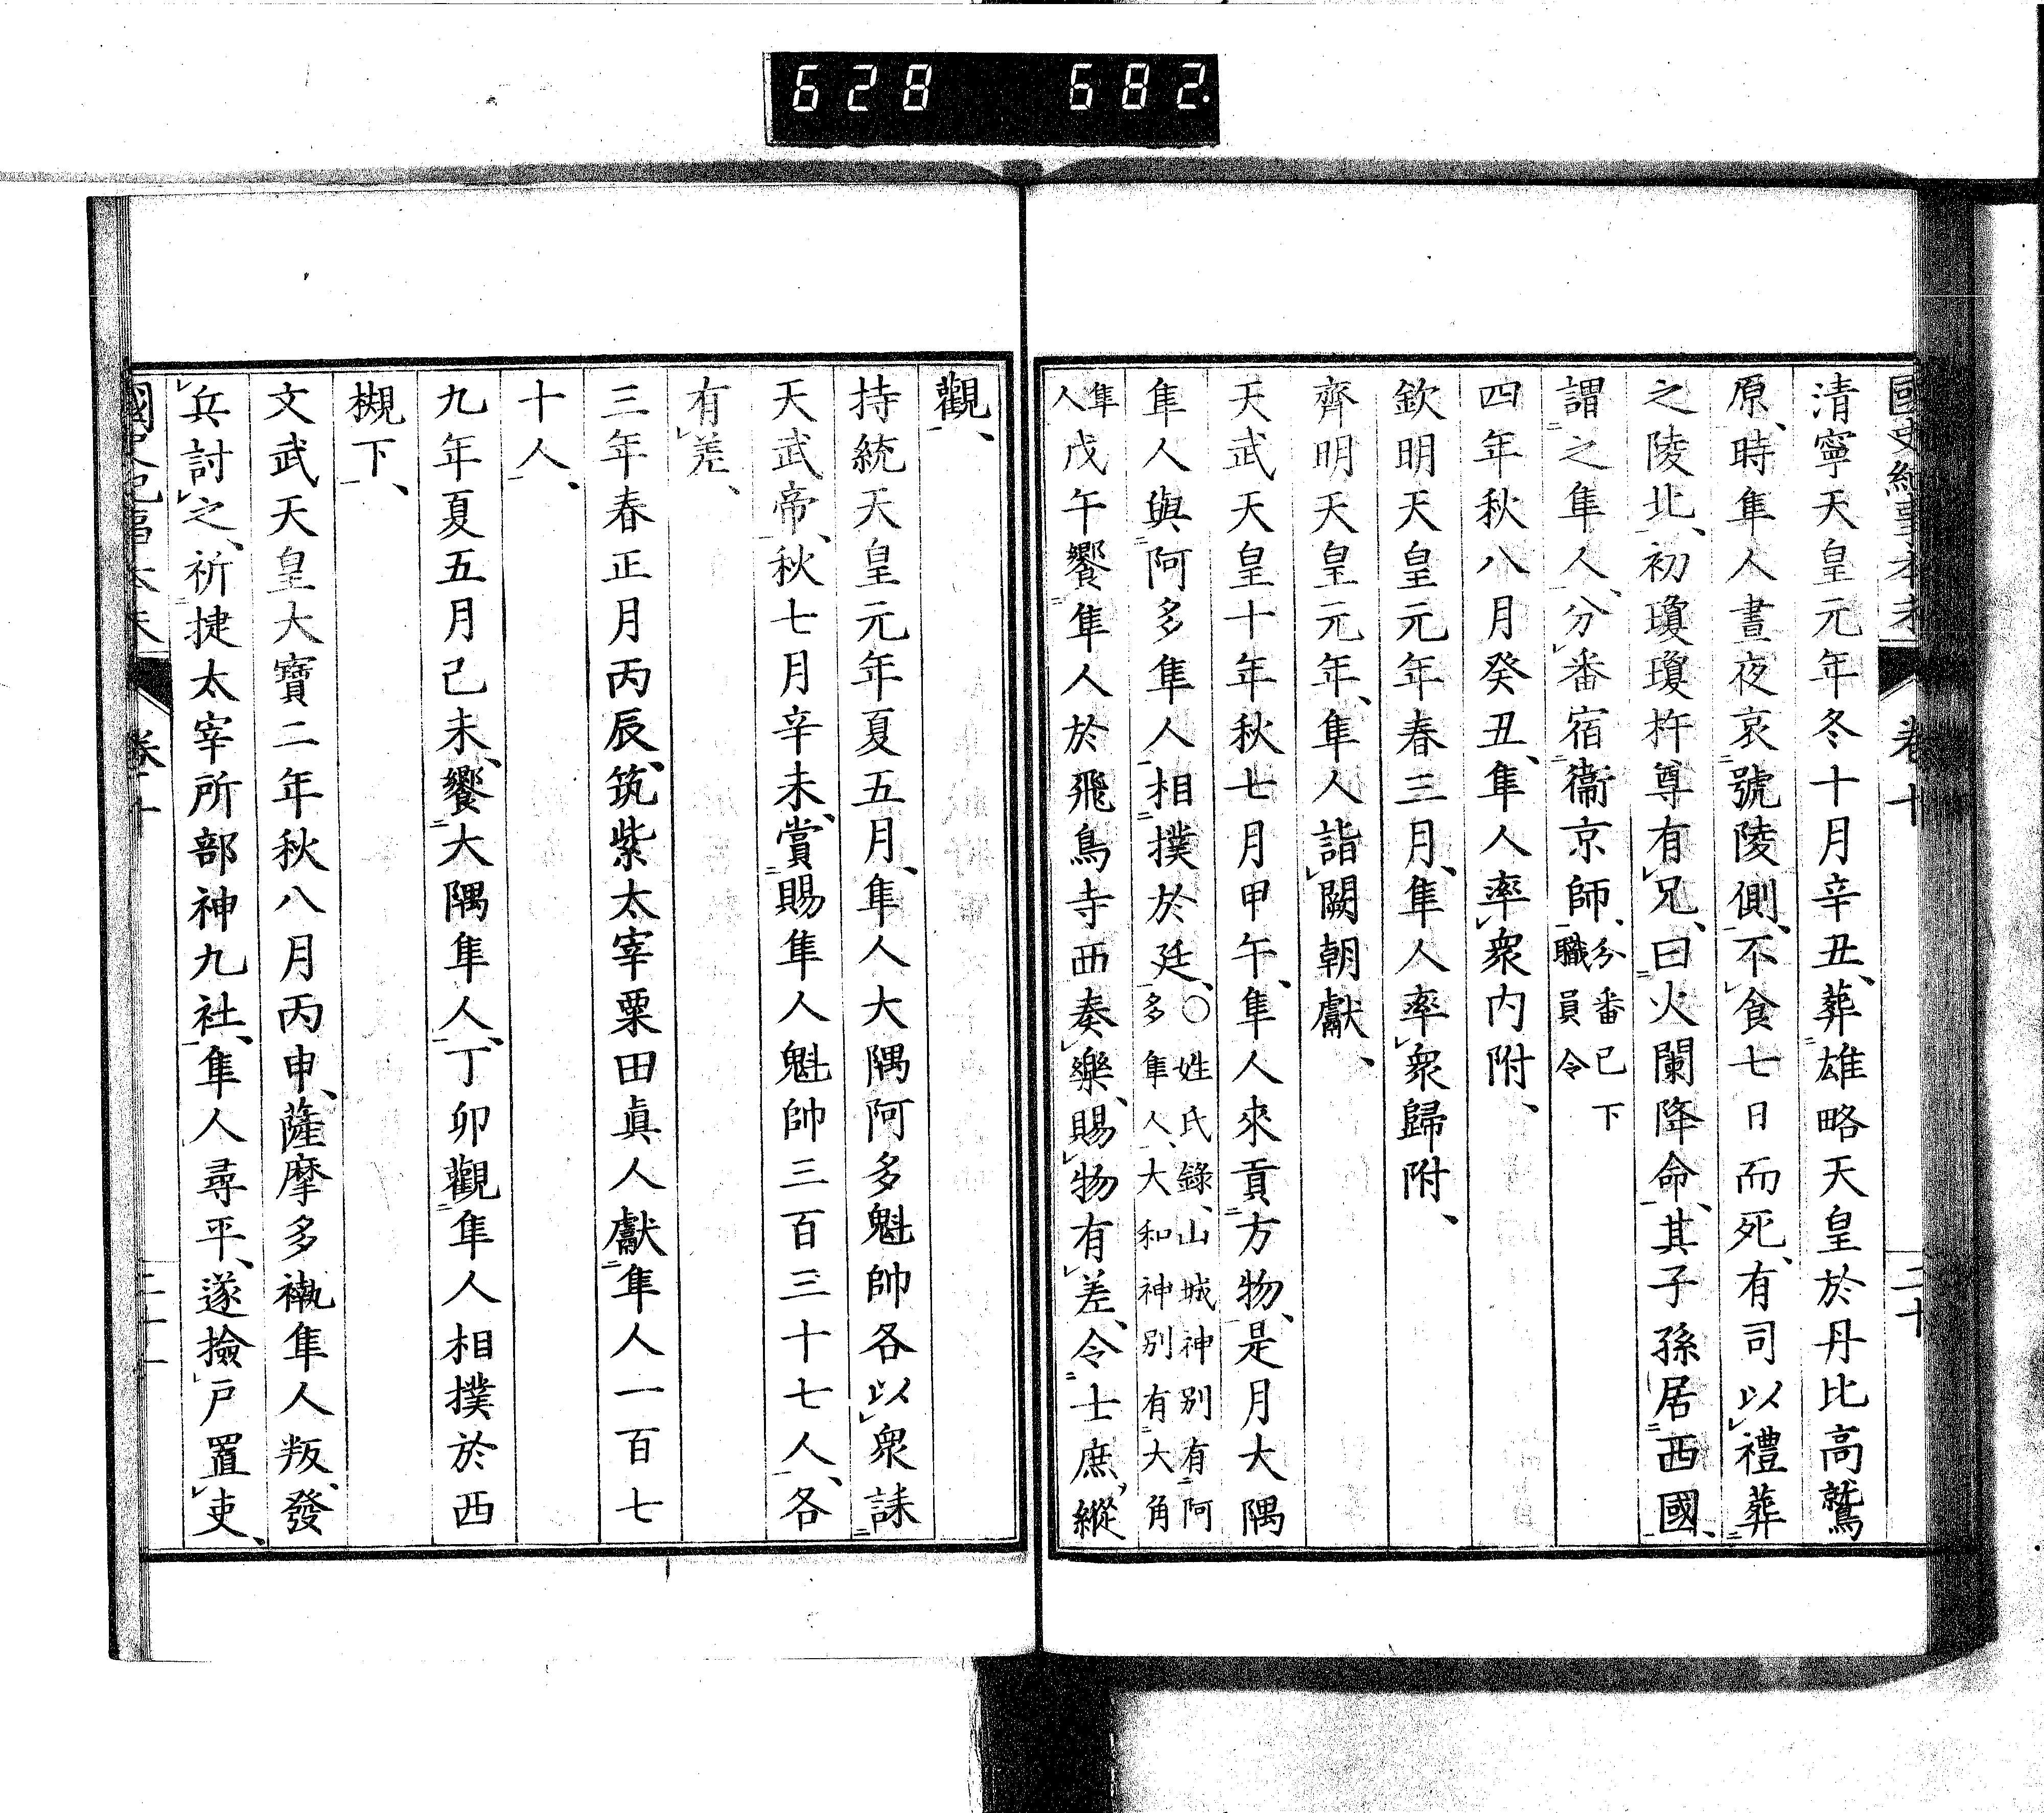 628 682.
國史紀事本末 卷十 二十
清寧天皇元年冬十月辛丑、葬雄略天皇於丹比高鷲
原、時隼人晝夜哀號陵側、不食七日而死、有司以禮葬
之陵北、初瓊瓊杵尊有兄、曰火闌降命、其子孫居西國、
謂之隼人、分番宿衞京師、分番已下職員令
四年秋八月癸丑、隼人率衆内附、
欽明天皇元年春三月、隼人率衆歸附、
齊明天皇元年、隼人詣闕朝獻、
天武天皇十年秋七月甲午、隼人來貢方物、是月大隅
隼人與阿多隼人相撲於廷、○姓氏錄、山城神別有阿多隼人、大和神別有大角
隼人戊午饗隼人於飛鳥寺西奏樂、賜物有差、令士庶縱
觀、
持統天皇元年夏五月、隼人大隅阿多魁帥各以衆誄
天武帝、秋七月辛未、賞賜隼人魁帥三百三十七人、各
有差、
三年春正月丙辰、筑紫太宰粟田眞人獻隼人一百七
十人、
九年夏五月己未、饗大隅隼人、丁卯觀隼人相撲於西
槻下、
文武天皇大寶二年秋八月丙申、薩摩多褹隼人叛、發
兵討之、祈捷太宰所部神九社、隼人尋平、遂撿戸置吏、